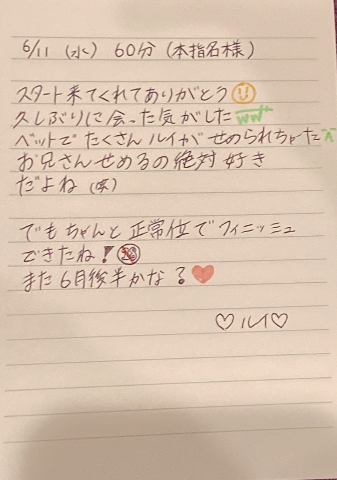 6/11 (水) 60分 (本指名様)
スタート来てくれてありがとう
久しぶりに会った気がしたww
ベットでたくさんルイがせめられちゃた^
お兄さんせめるの絶対好き
だよね (笑)
でもちゃんと正常位でフィニッシュ
できたね!
また6月後半かな?♥
♡ルイ♡